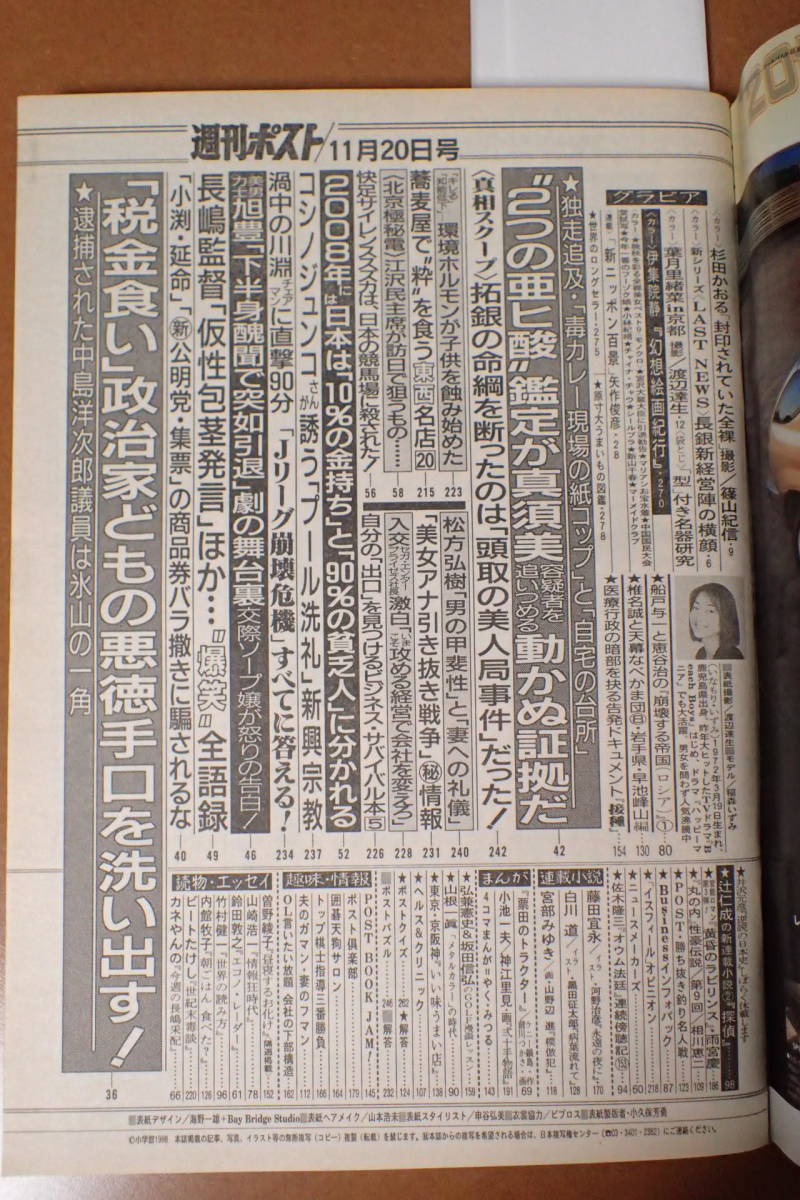 週刊ポスト/11月20日号
グラビア
〈カラー〉杉田かおる「封印されていた全裸」撮影/篠山紀信・9
〈カラー〉新シリーズ〈LAST NEWS〉長銀新経営陣の横顔・6
〈カラー〉葉月里緒菜in京都 撮影/渡辺達生・12
〈カラー〉伊集院静『幻想絵画紀行』・270
連載「新ニッポン百景」矢作俊彦・28
★世界のロングセラー・275
★原寸大うまいもの図鑑・278
■表紙撮影/渡辺達生■モデル/稲森いずみ
★船戸与一と恵谷治の「崩壊する帝国(ロシア)」① 80
★椎名誠と天幕なべかま団⑧・岩手県・早池峰山編 130
★医療行政の暗部を抉る告発ドキュメント「接種」 154
★独走追及・「毒カレー現場の紙コップ」と「自宅の台所」
“2つの亜ヒ酸”鑑定が真須美容疑者を追いつめる動かぬ証拠だ 42
〈真相スクープ〉拓銀の命綱を断ったのは「頭取の美人局事件」だった! 242
環境ホルモンが子供を蝕み始めた 223
蕎麦屋で“粋”を食う東西名店20 215
〈北京極秘電〉江沢民主席が訪日で狙うもの…… 58
快足サイレンススズカは、日本の競馬場に殺された! 56
松方弘樹「男の甲斐性」と「妻への礼儀」 240
「美女アナ引き抜き戦争」㊙情報 231
入交セガ・エンタープライゼス社長激白「いまこそ攻める経営で会社を変えろ」 228
自分の「出口」を見つけるビジネス・サバイバル本⑤ 226
2008年には日本は、「10%の金持ち」と「90%の貧乏人」に分かれる 52
コシノジュンコさんが誘う「プール洗礼」新興宗教 237
渦中の川淵チェアマンに直撃90分「Jリーグ崩壊危機」すべてに答える! 234
旭豊「下半身醜聞で突如引退」劇の舞台裏 交際ソープ嬢が怒りの告白! 46
長嶋監督「仮性包茎発言」ほか…“爆笑”全語録 49
「小渕・延命」「新公明党・集票」の商品券バラ撒きに騙されるな 40
「税金食い」政治家どもの悪徳手口を洗い出す! 36
★逮捕された中島洋次郎議員は氷山の一角
★辻仁成の新連載小説②『探偵』 98
黄昏のラビリンス・雨宮慶 186
★丸の内「性豪伝説」第9回・相川恵二 109
★POST・勝ち抜き釣り名人戦 123
★Businessインフォパック 87
★“イスフィールオピニオン 218
★ニュースメーカーズ 60
★佐木隆三「オウム法廷」連続傍聴記152 94
連載小説
藤田宜永/イラスト・河野治彦「永遠の夜に」 170
白川道/イラスト・黒田征太郎「病葉流れて」 128
宮部みゆき/画・山野辺進「模倣犯」 28
まんが
小池一夫/神江里見・画「弐十手物語」 191
4コマまんが=やく・みつる 143
弘兼憲史&坂田信弘/GOLF漫画レッスン 159
★山根一眞「メタルカラー」の時代 90
★東京・京阪神「いい味うまい店」 138
★ヘルス&クリニック 107
★ポストクイズ 262 ★解答 124
■ポストパズル 246 ■解答 232
趣味・情報
POST BOOK JAM! 145
ポスト倶楽部 179
囲碁天狗サロン 164
トップ棋士指導三番勝負 166
夫のガマン 妻のフマン 112
OL言いたい放題 会社の下部構造 162
読物・エッセイ
曽野綾子「昼寝するお化け」隔週掲載 152
山崎浩一「情報狂時代」 78
鈴田敦之「エコノ・リーダー」 61
竹村健一「世界の読み方」 96
内館牧子「朝ごはん食べた?」 126
ビートたけし「世紀末毒談」 220
カネやんの「今週の長嶋采配」 66
■表紙デザイン/海野一雄+Bay Bridge Studio■表紙ヘアメイク/山本浩未■表紙スタイリスト/申谷弘美■衣裳協力/ビブロス■表紙製版者・小久保芳勇
©小学館1998 本誌掲載の記事、写真、イラスト等の無断複写(コピー)複製(転載)を禁じます。複写をご希望される場合は、日本複写権センター(☎03・3401・2382)にご連絡ください。